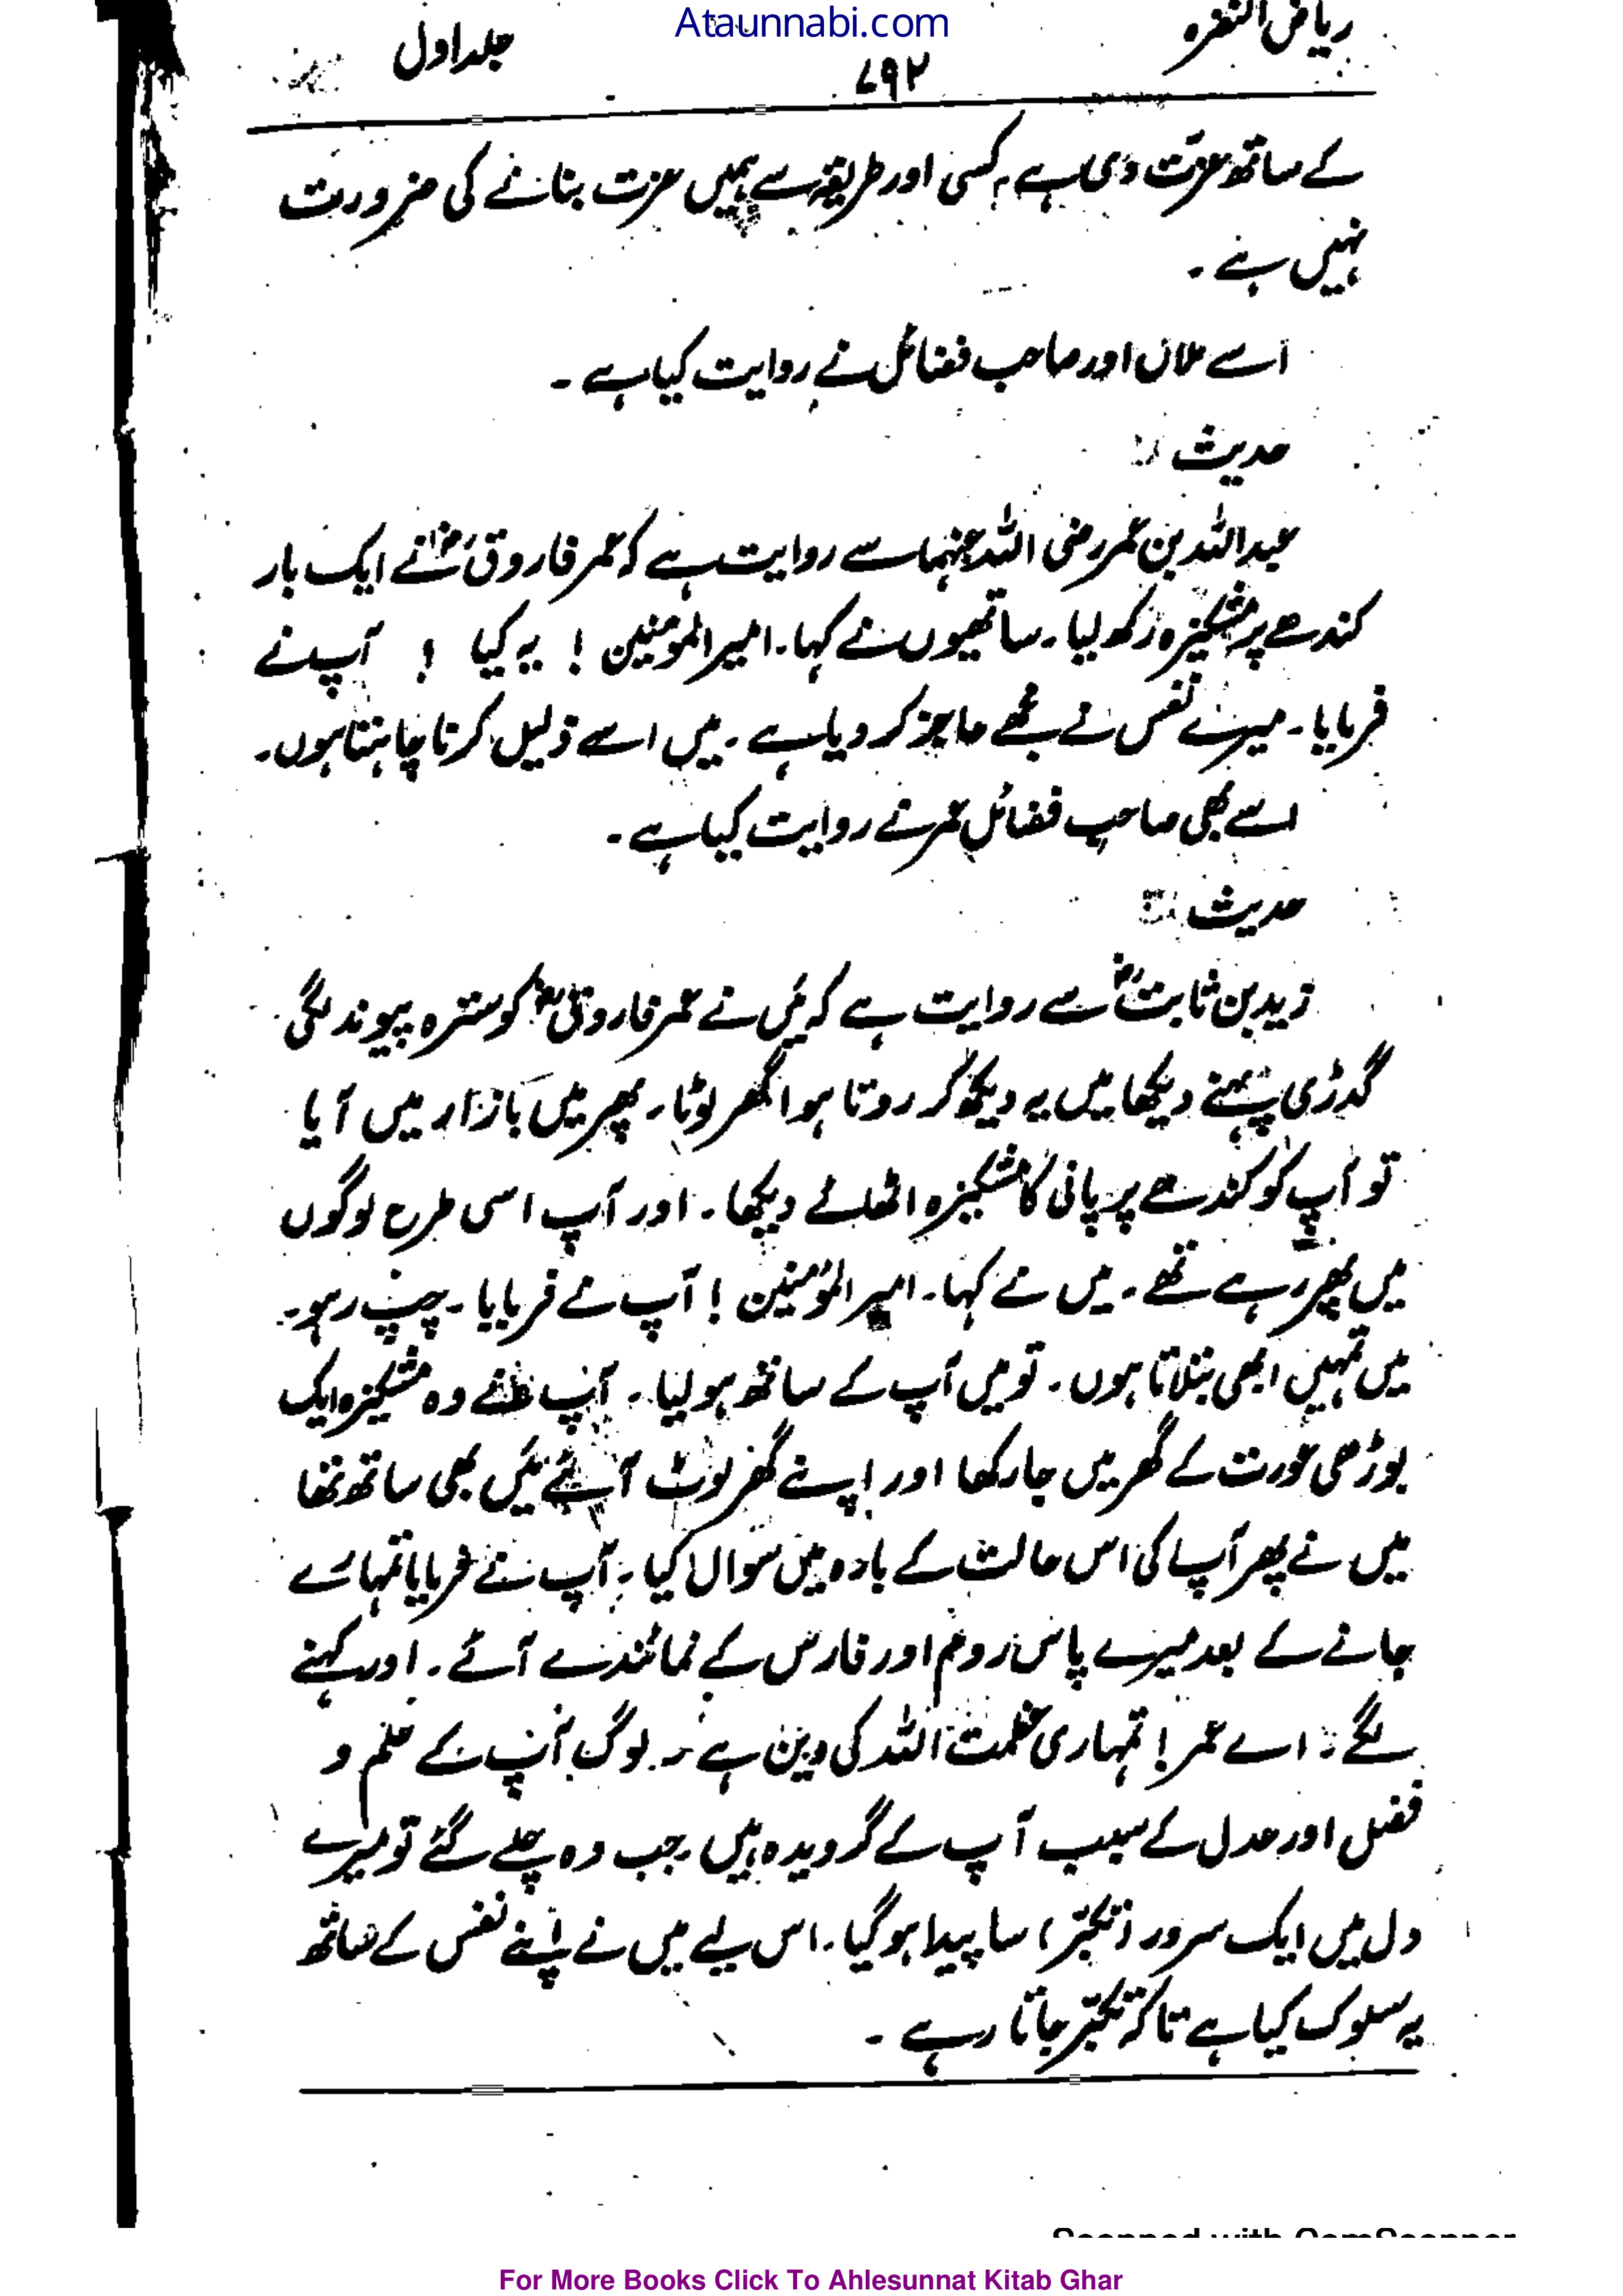 Ataunnabi.com
ریاض النضرہ ۷۹۲ جلد اول
کے ساتھ عزت دی ہے، کسی اور طریقہ سے ہمیں عزت بنانے کی ضرورت
نہیں ہے ۔
اسے ملاں اور صاحب فضائل نے روایت کیا ہے ۔
حدیث
عبداللہ بن عمر رضی اللہ عنہما سے روایت ہے کہ عمر فاروقؓ نے ایک بار
کندھے پر مشکیزہ رکھ لیا ۔ ساتھیوں نے کہا ۔ امیر المؤمنین ! یہ کیا ! آپ نے
فرمایا ۔ میرے نفس نے مجھے عاجز کر دیا ہے ۔ میں اسے ذلیل کرنا چاہتا ہوں ۔
اسے بھی صاحب فضائل عمر نے روایت کیا ہے ۔
حدیث
زید بن ثابتؓ سے روایت ہے کہ میں نے عمر فاروقؓ کو سترہ پیوند لگی
گدڑی پہنے دیکھا میں یہ دیکھ کر روتا ہوا گھر لوٹا ۔ پھر میں بازار میں آیا
تو آپ کو کندھے پر پانی کا مشکیزہ اٹھائے دیکھا ۔ اور آپ اسی طرح لوگوں
میں پھر رہے تھے ۔ میں نے کہا ۔ امیر المؤمنین ! آپ نے فرمایا ۔ چپ رہو ۔
میں تمہیں ابھی بتلاتا ہوں ۔ تو میں آپ کے ساتھ ہو لیا ۔ آپ نے وہ مشکیزہ ایک
بوڑھی عورت کے گھر میں جا رکھا اور اپنے گھر لوٹ آئے میں بھی ساتھ تھا
میں نے پھر آپ کی اس حالت کے بارہ میں سوال کیا ۔ آپ نے فرمایا تمہارے
جانے کے بعد میرے پاس روم اور فارس کے نمائندے آئے ۔ اور کہنے
لگے : اے عمر ! تمہاری عظمت اللہ کی دین ہے ۔ لوگ آپ کے علم و
فضل اور عدل کے سبب آپ کے گرویدہ ہیں ۔ جب وہ چلے گئے تو میرے
دل میں ایک سرور (تکبّر) سا پیدا ہو گیا ۔ اس لیے میں نے اپنے نفس کے ساتھ
یہ سلوک کیا ہے تا کہ تکبّر جاتا رہے ۔
Scanned with CamScanner
For More Books Click To Ahlesunnat Kitab Ghar